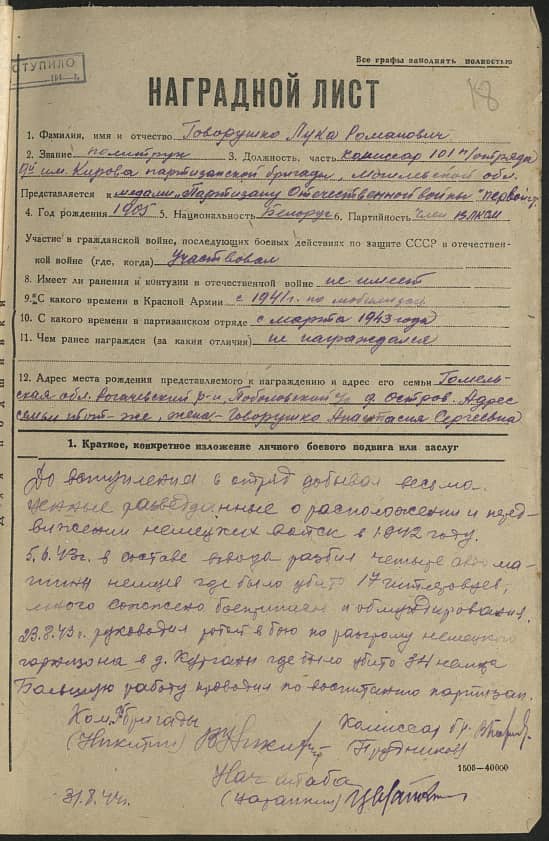 СТУПИЛО
Все графы заполнять полностью
18
НАГРАДНОЙ ЛИСТ
1. Фамилия, имя и отчество Говорушко Лука Романович
2. Звание политрук 3. Должность, часть комиссар 101 п/отряда
9й им. Кирова партизанской бригады, Могилевской обл.
Представляется к медали „Партизану Отечественной войны" первой ст.
4. Год рождения 1905 5. Национальность Белорус 6. Партийность член ВЛКСМ
Участие в гражданской войне, последующих боевых действиях по защите СССР в отечествен-
ной войне (где, когда) участвовал
8. Имеет ли ранения и контузии в отечественной войне не имеет
9. С какого времени в Красной Армии с 1941 г. по мобилизац
10. С какого времени в партизанском отряде с марта 1943 года
11. Чем ранее награжден (за какия отличия) не награждался
12. Адрес места рождения представляемого к награждению и адрес его семьи Гомель-
ская обл. Рогачевский р-н, Поболовский с/с д. Остров. Адрес
семьи тот-же, жена-Говорушко Анастасия Сергеевна
1. Краткое, конкретное изложение личного боевого подвига или заслуг
До вступления в отряд добывал весьма
ценные разведданные о расположении и перед-
вижении немецких войск в 1942 году.
5.6.43г. в составе взвода разбил четыре авто ма-
шины немцев где было убито 17 гитлеровцев,
много сожжено боеприпасов и обмундирования.
23.8.43г. руководил ротой в бою по разгрому немецкого
гарнизона в д. Курганы где было убито 34 немца
Большую работу проводил по воспитанию партизан.
Ком. бригады Комиссар бр.
(Никитин) (Прудников)
Нач штаба
31.8.44г.
1505-40000